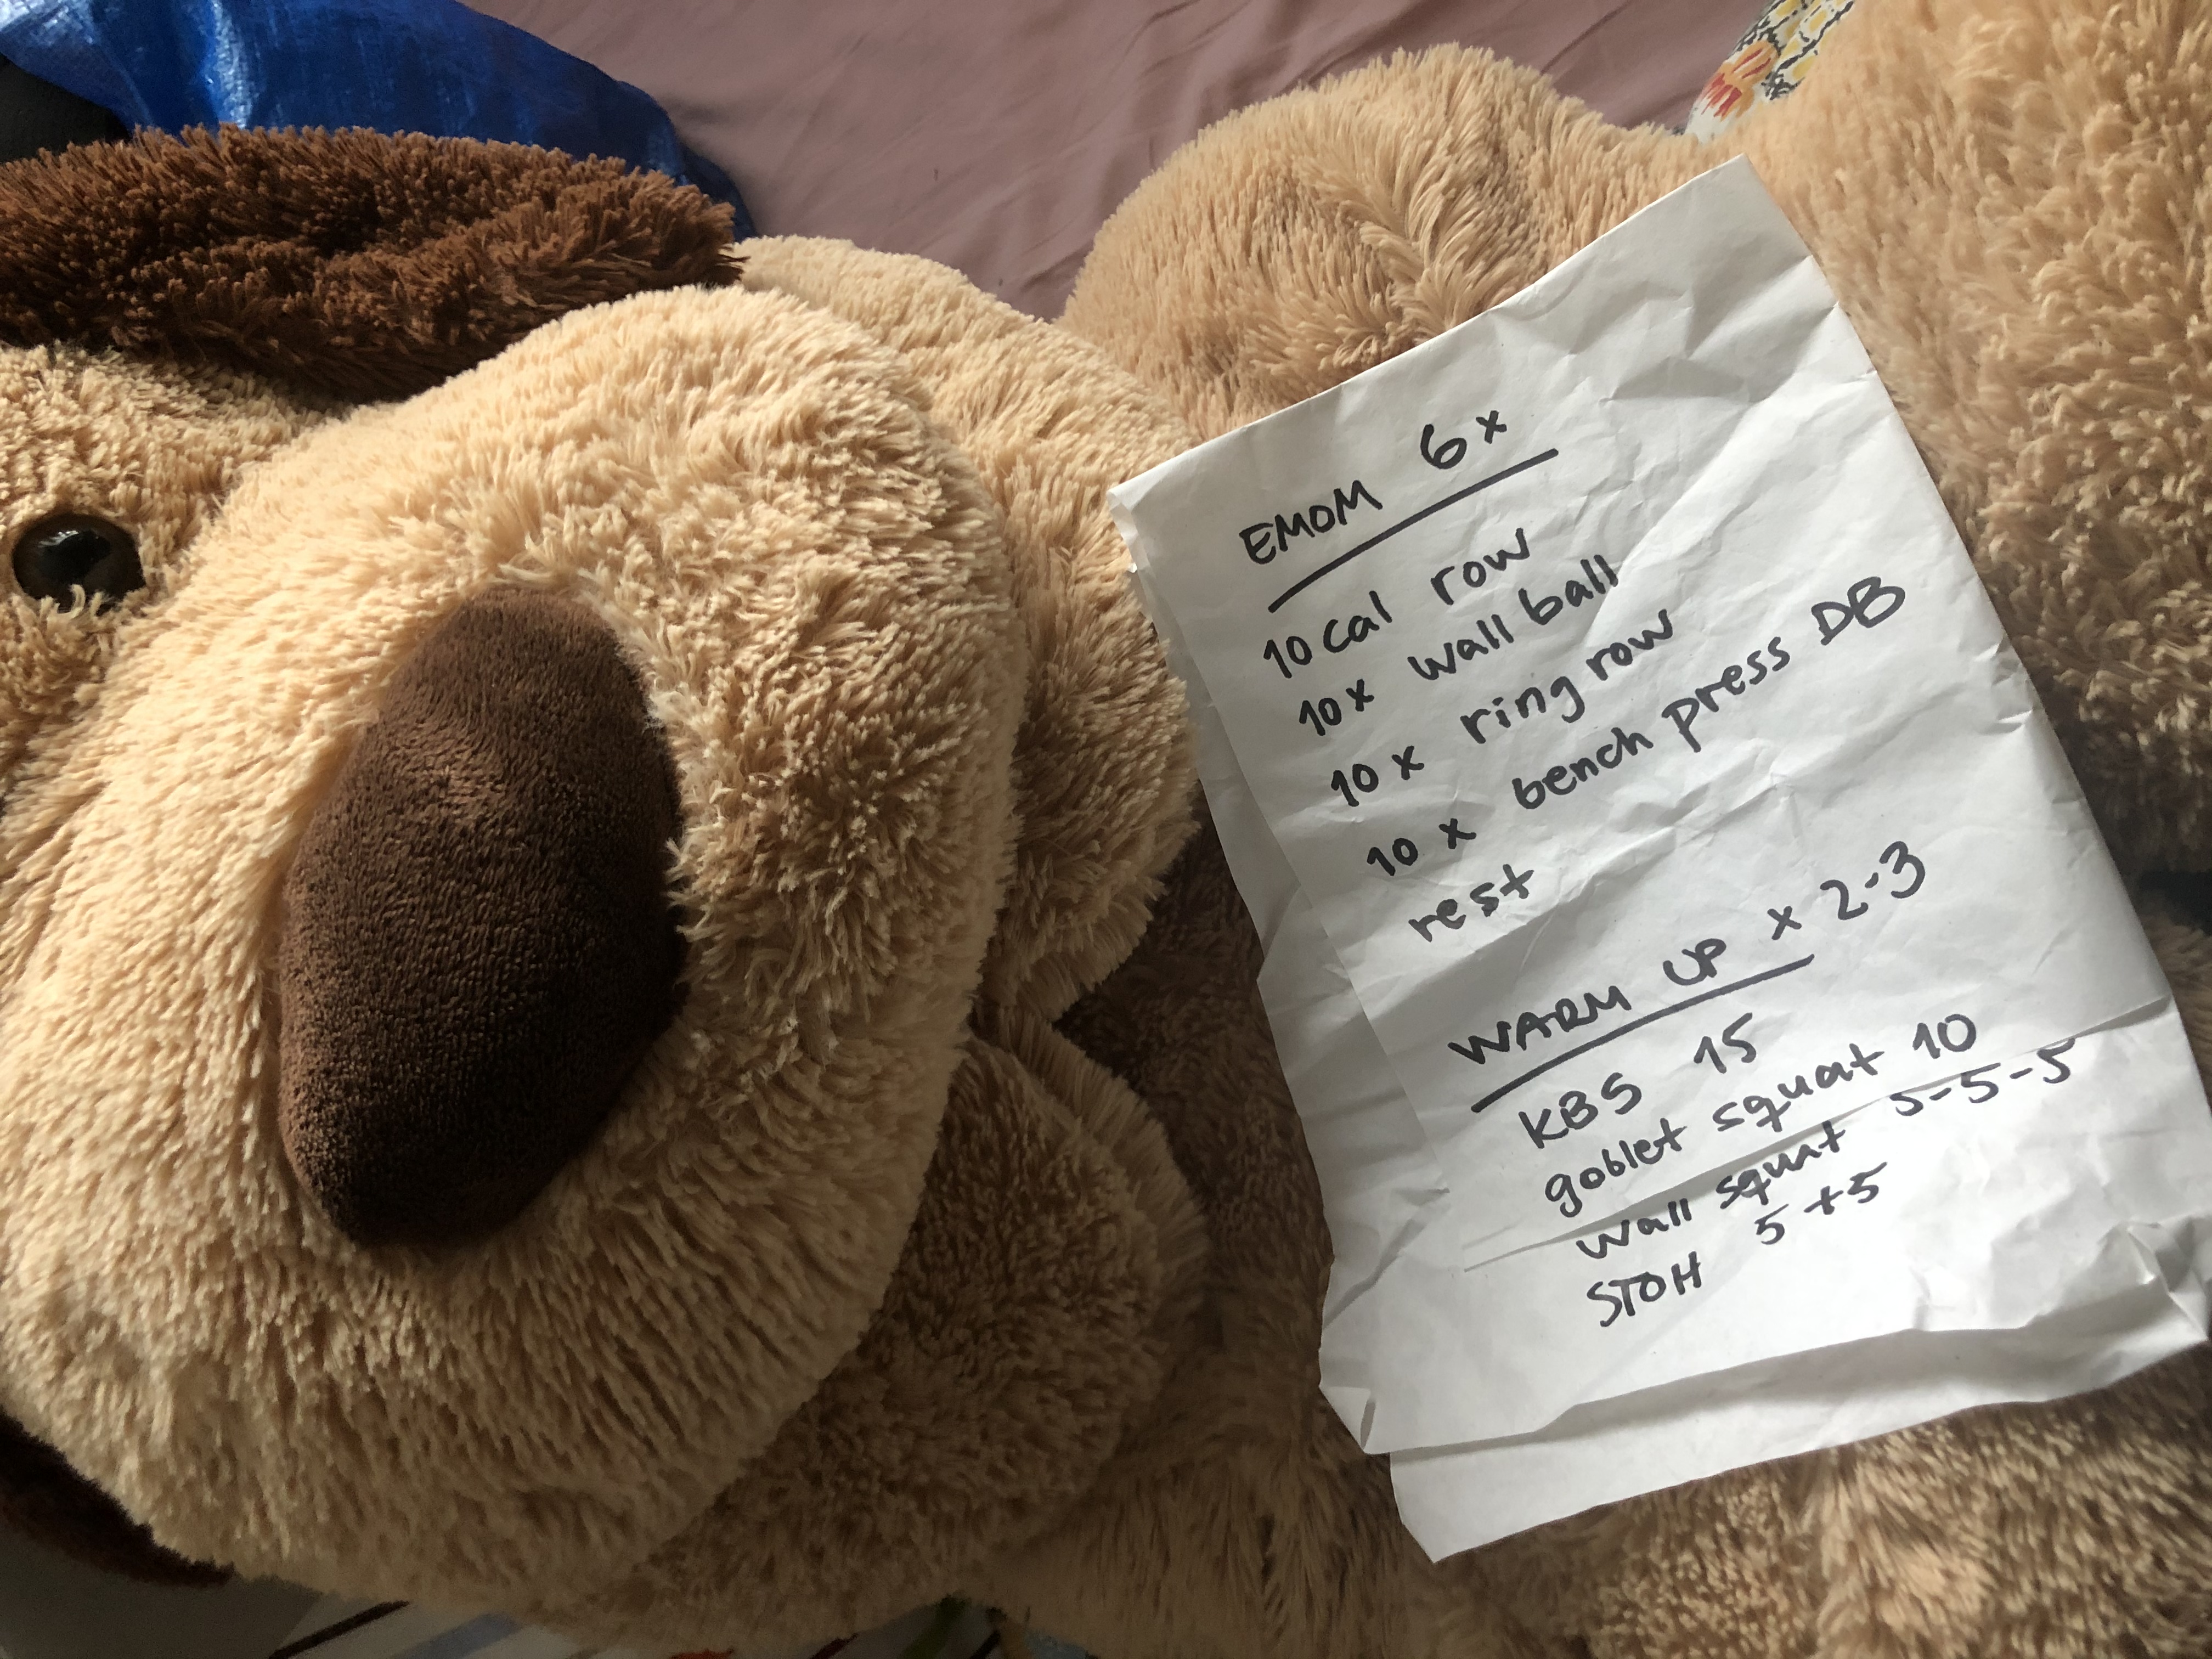 EMOM 6x
10 cal row
10x wall ball
10 x ring row
10 x bench press DB
rest
WARM UP x 2-3
KBS 15
goblet squat 10
wall squat 5-5-5
STOH 5+5